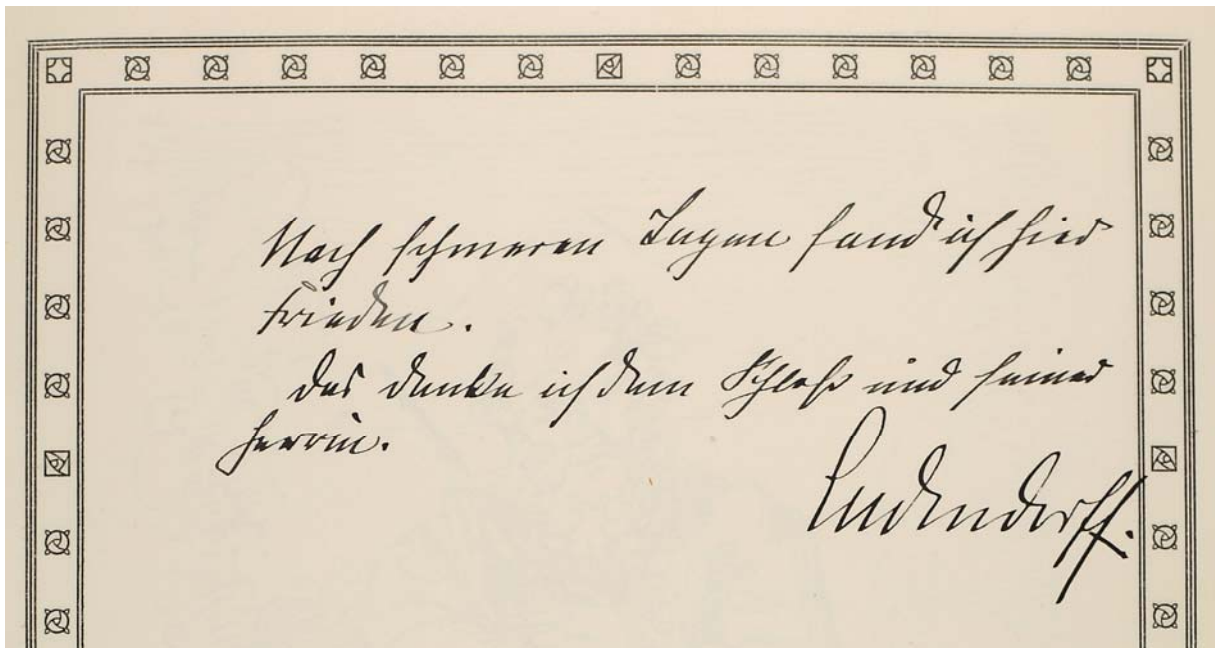 Nach schweren Tagen fand ich hier
Frieden.
Das danke ich dem Schloß und seiner
Herrin.
Ludendorff.